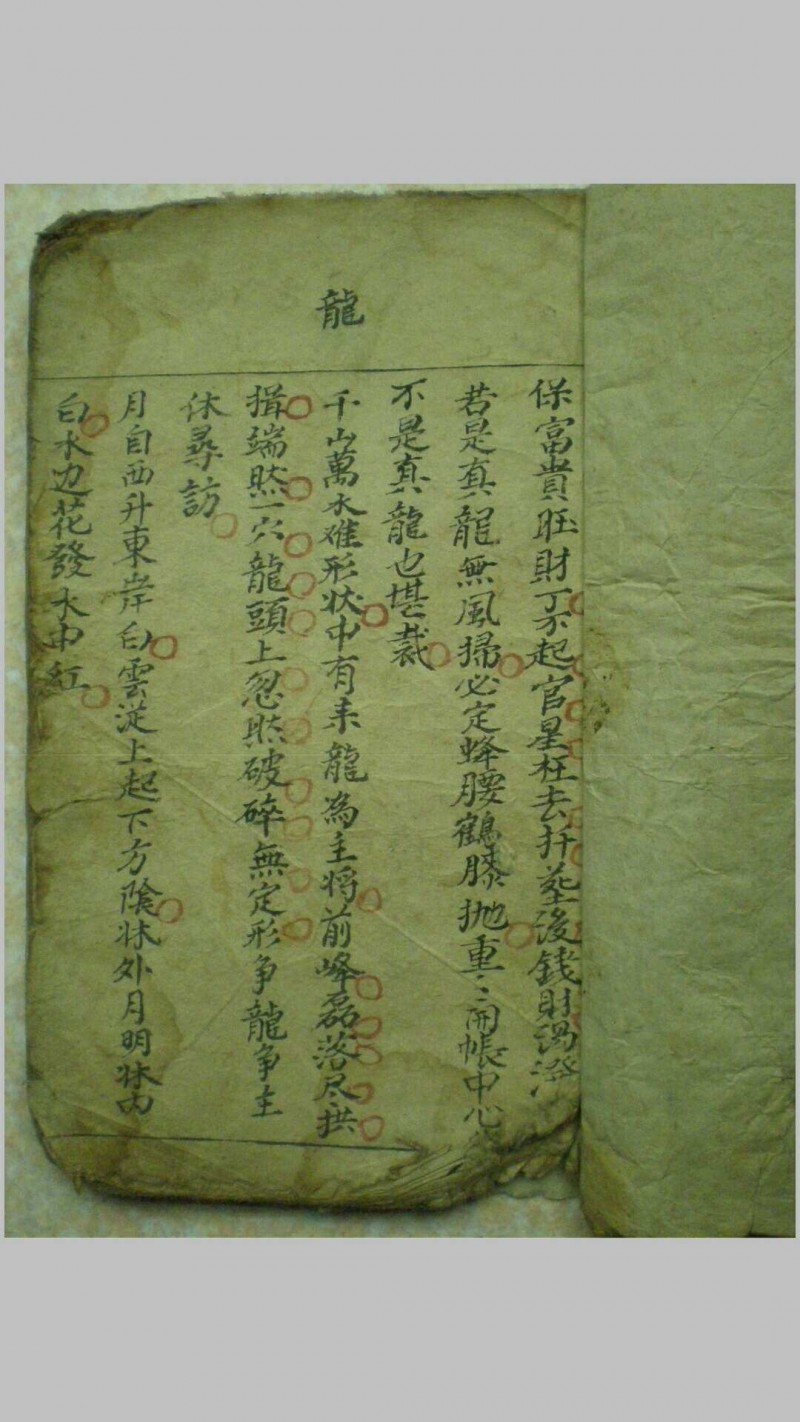 龍
保富貴旺財丁不起官星枉去扦塟後錢財
若是真龍無風掃必定蜂腰鶴膝抛重々開帳中心
不是真龍也堪裁
千山萬水难形状中有来龍為主将前峰磊落尽拱
揖端然一穴龍頭上忽然破碎無定形争龍争主
休尋訪
月自西升東岸白雲从上起下方陰牀外月明牀内
白水边花發水中紅